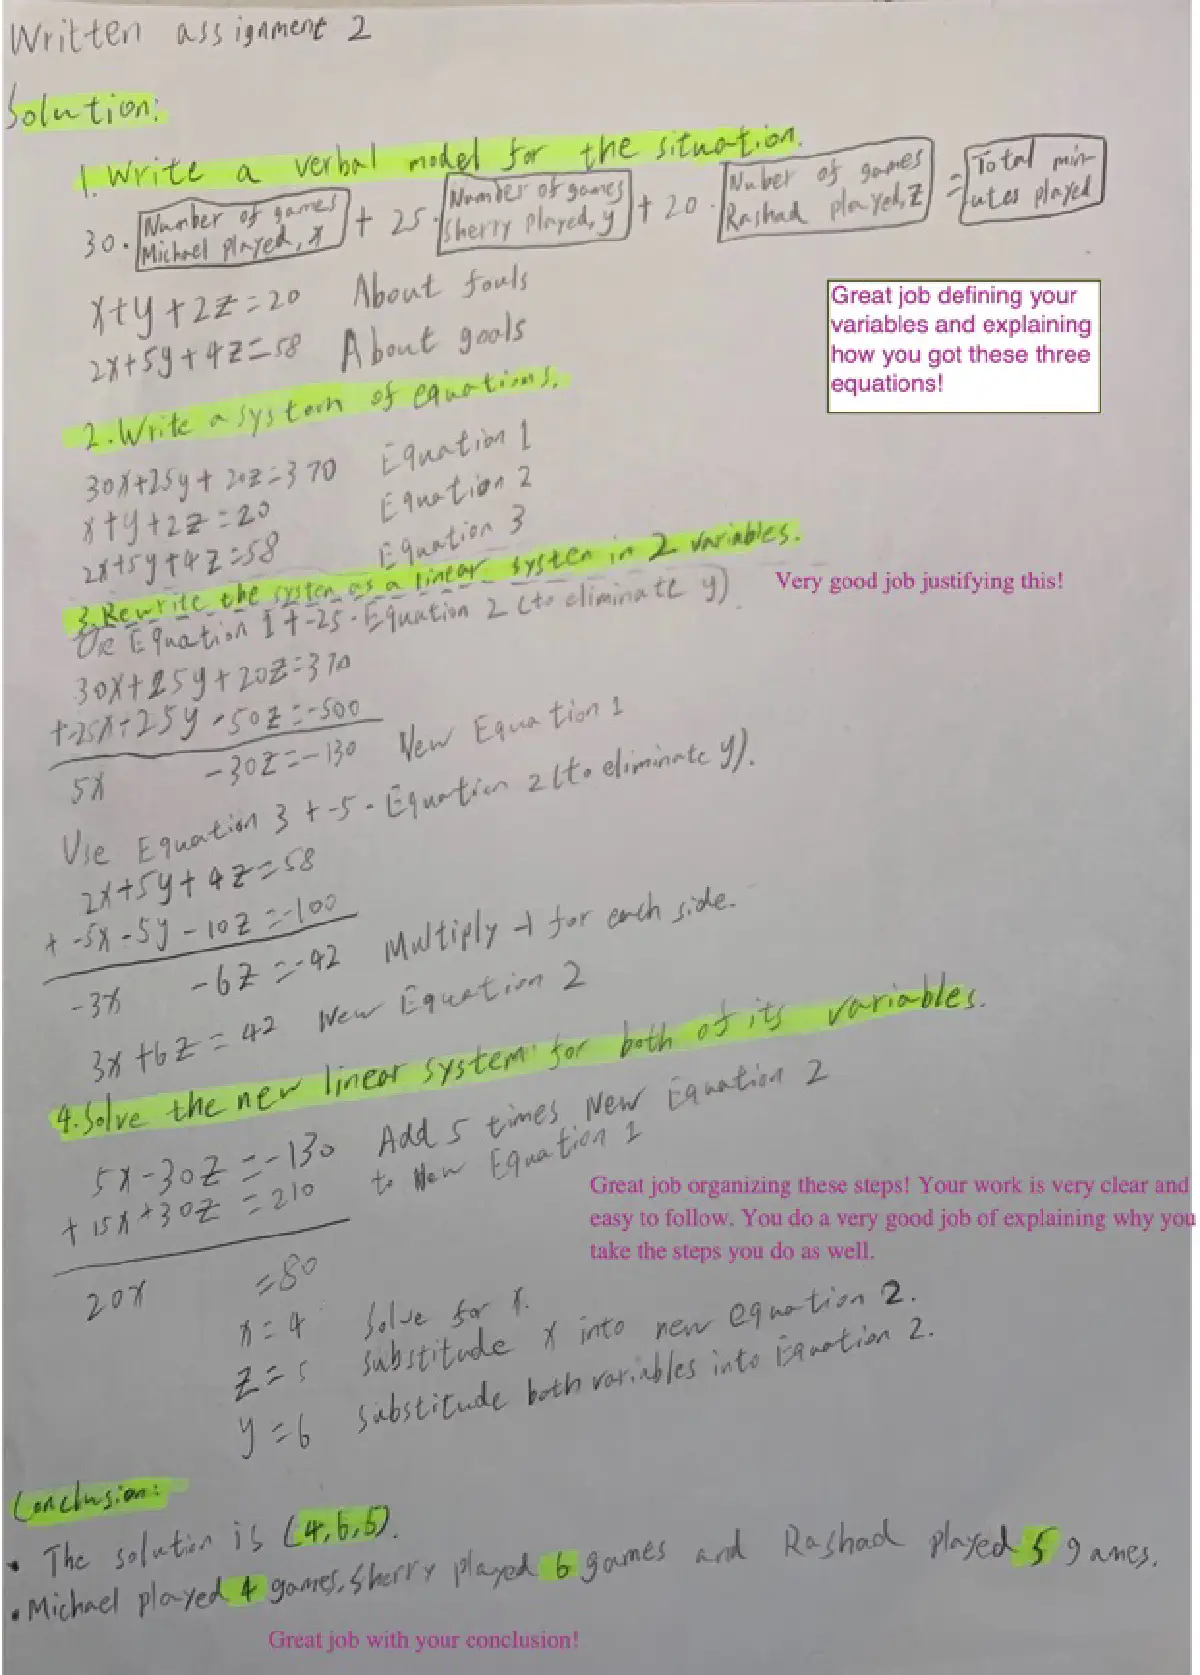 Written assignment 2
Solution:
1. Write a verbal model for the situation.
30 · Number of games Michael played, x + 25 · Number of games Sherry played, y + 20 · Nuber of games Rashad played, z = Total minutes played
x+y+2z=20 About fouls
2x+5y+4z=58 About goals
Great job defining your
variables and explaining
how you got these three
equations!
2. Write a system of equations.
30x+25y+20z=370 Equation 1
x+y+2z=20 Equation 2
2x+5y+4z=58 Equation 3
3. Rewrite the system as a linear system in 2 variables.
Very good job justifying this!
Use Equation 1 + -25 · Equation 2 (to eliminate y).
30x+25y+20z=370
+-25x-25y-50z=-500
5x -30z=-130 New Equation 1
Use Equation 3 + -5 · Equation 2 (to eliminate y).
2x+5y+4z=58
+ -5x-5y-10z=-100
-3x -6z=-42 Multiply -1 for each side.
3x+6z=42 New Equation 2
4. Solve the new linear system for both of its variables.
5x-30z=-130 Add 5 times New Equation 2
+ 15x+30z=210 to New Equation 1
Great job organizing these steps! Your work is very clear and
easy to follow. You do a very good job of explaining why you
take the steps you do as well.
20x =80
x=4 Solve for x.
z=5 substitude x into new equation 2.
y=6 substitude both variables into Equation 2.
Conclusion:
• The solution is (4,6,5).
• Michael played 4 games, Sherry played 6 games and Rashad played 5 games.
Great job with your conclusion!